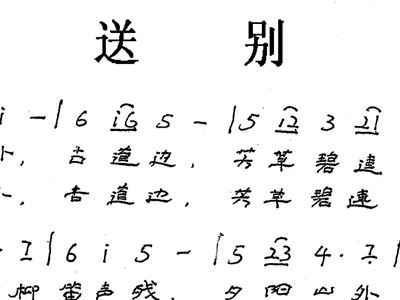 送 别
i - | 6 i6 5 - | 5 12 3 21
, 古 道 边 , 芳 草 碧 連
, 古 道 边 , 芳 草 碧 連
· 1 | 6 i 5 - | 5 23 4 · 7 |
柳 笛 声 残 , 夕 阳 山 外